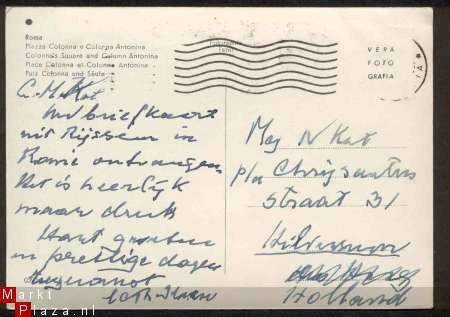 Roma
Piazza Colonna e Colonna Antonina
Colonna's Square and Column Antonina
Place Colonna et Colonne Antonine
Platz Colonna und Säule
VERA
FOTO
GRAFIA
briefkaart
uit Rijssen in
Rome ontvangen
Het is heerlijk
maar druk
Hart groeten
en prettige dagen
Mej N Kat
p/a Chrysanten
straat 31
Hilversum
Holland
Markt
Plaza.nl